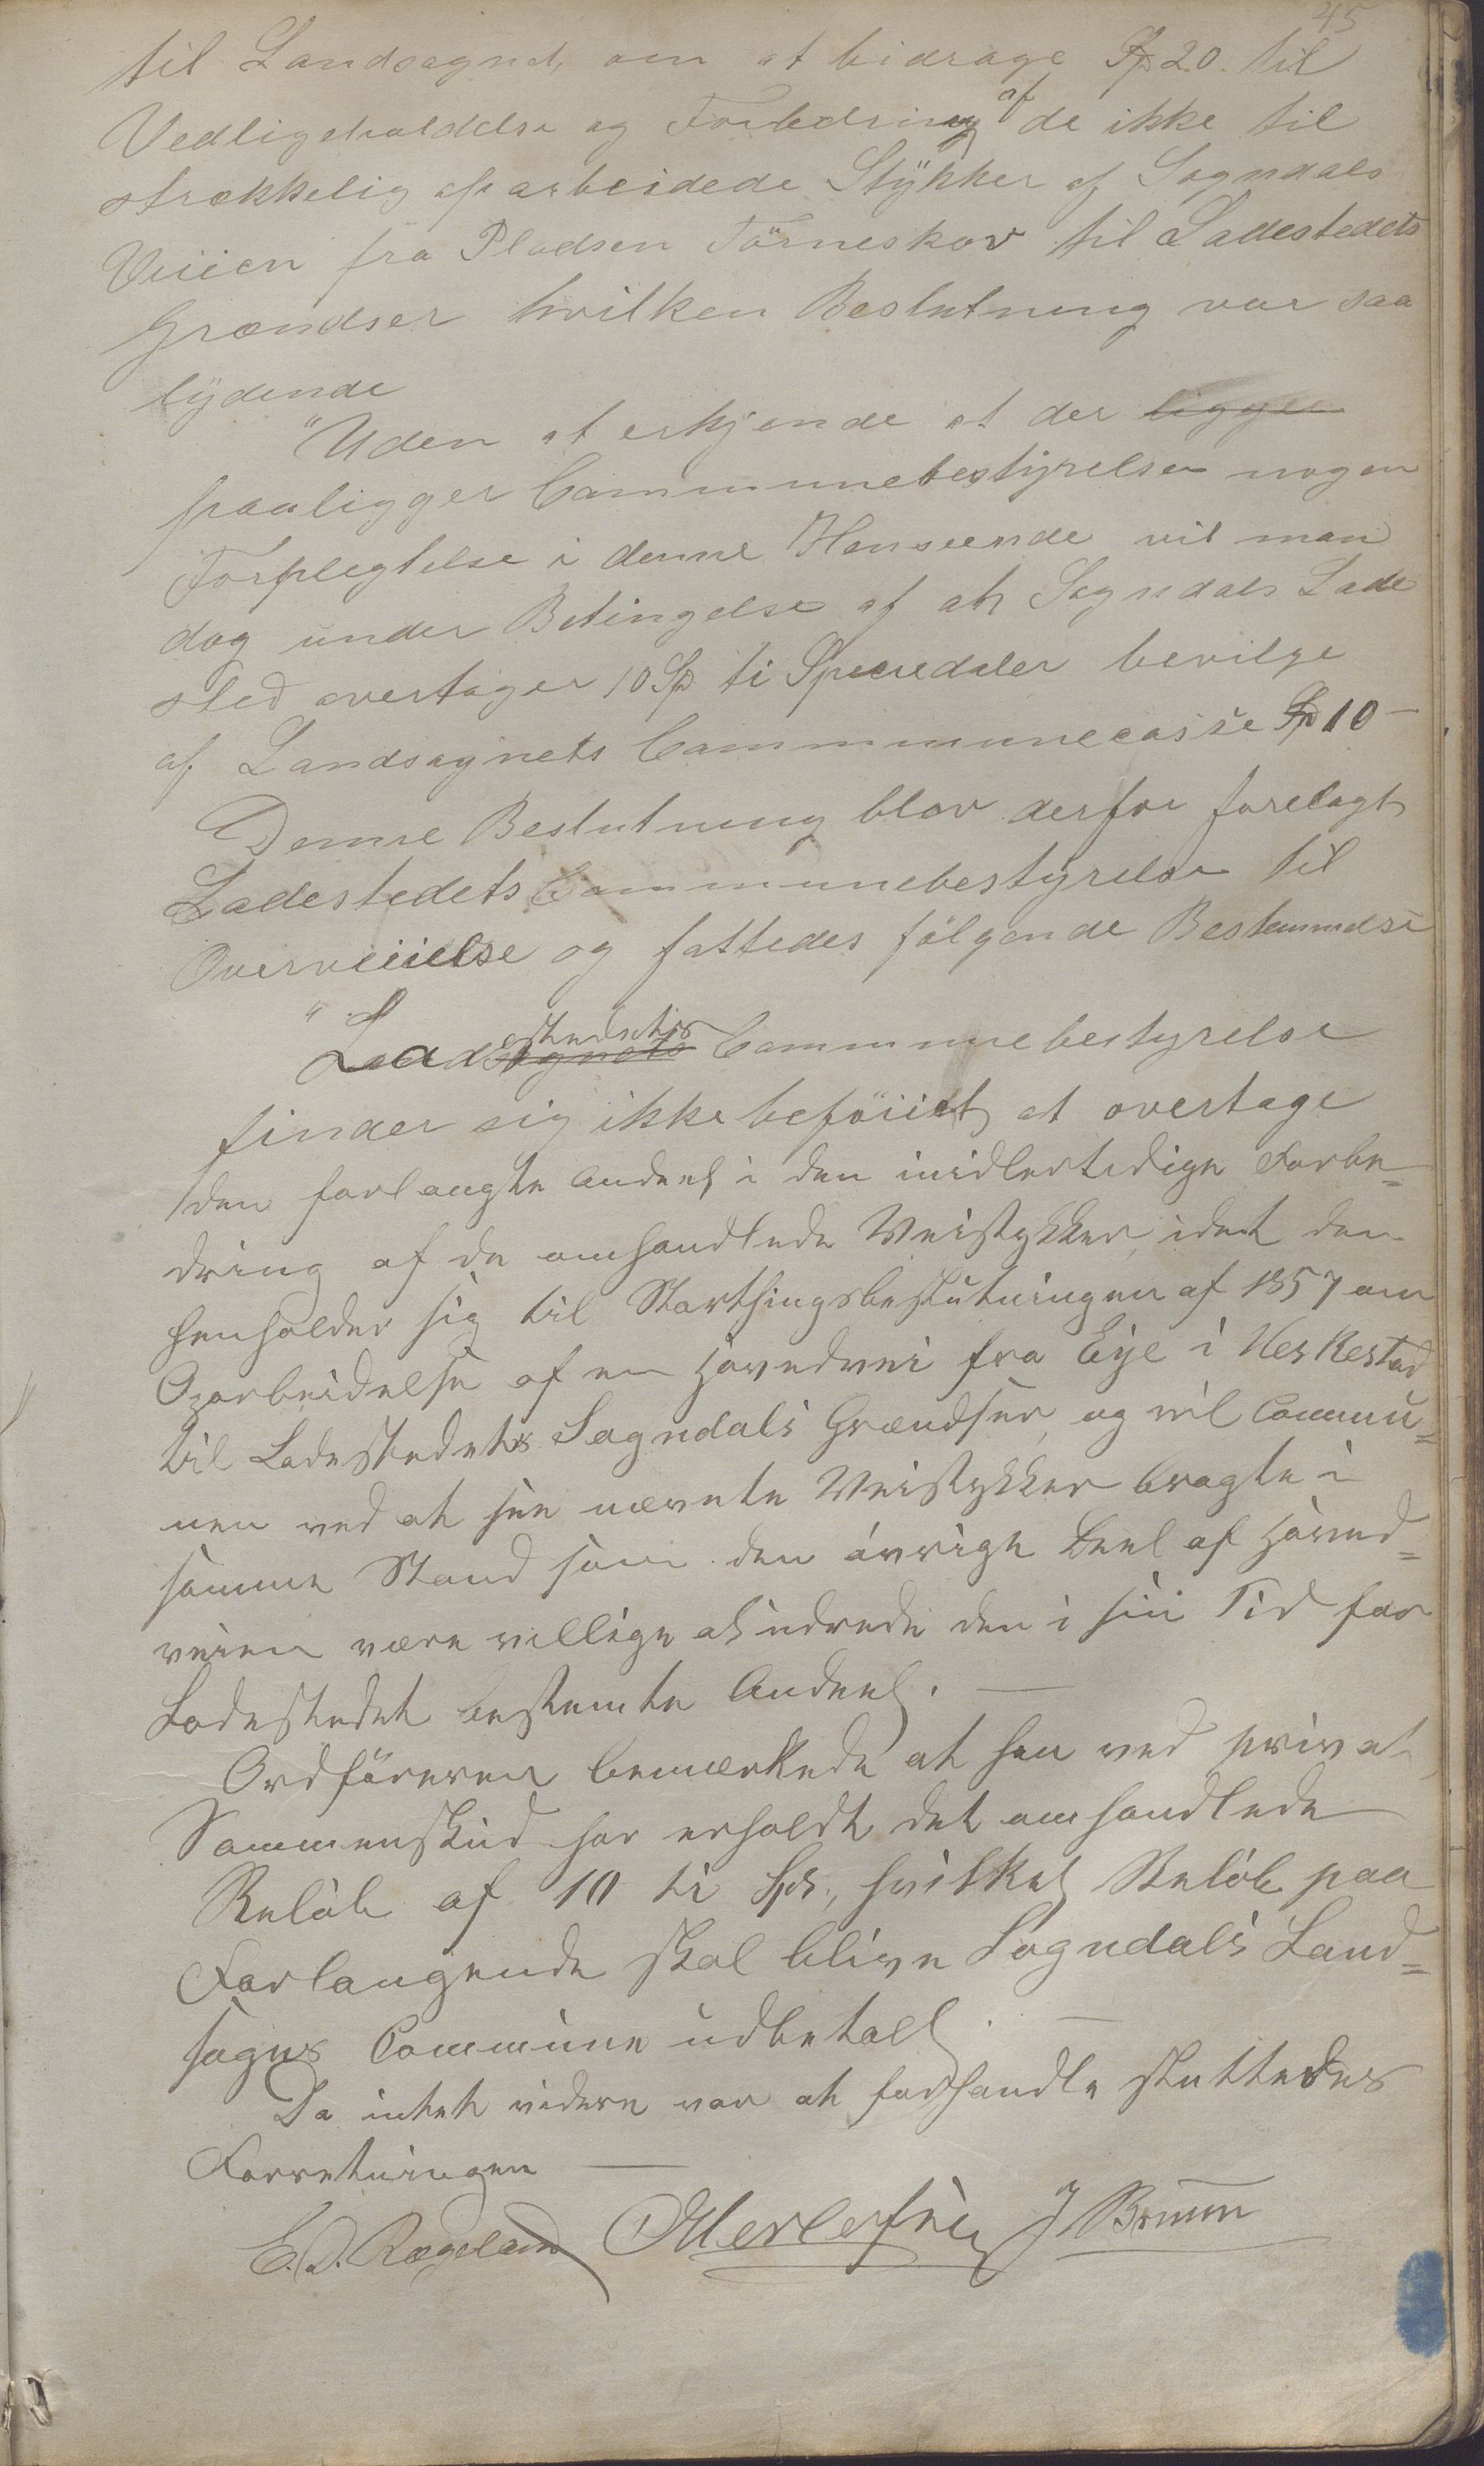 45
til Landsognet, om at bidrage Sp 20. til
Vedligeholdelse og Forbedring af de ikke til
strækkelig oparbeidede Stÿkker af Sogndals
Veiien fra Pladsen Törneskov til Ladestedets
Grændser hvilken Beslutning var saa
lÿdende
"Uden at erkjende at der ligger
paaligger Communebestÿrelsen nogen
Forpligtelse i denne Henseende vil man
dog under Betingelse af at Sogndals Lade
sted overtager 10 Sp ti Speciedaler bevilge
af Landsognets Communecasse Sp 10 -
Denne Beslutning blev derfor forelagt
Ladestedets Communebestyrelse til
Overveiielse og fattedes fölgende Bestemmelse
"Ladestedets Communebestyrelse
finder sig ikke beföiiet at overtage
den forlangte Andeel i den midlertidige Forbe=
dring af de omhandlede Veistykker, idet den
henholder sig til Storthingsbeslutningen af 1857 om
Oparbeidelse af en Hovedvei fra Eije i Heskestad
til Ladestedets Sogndals Grændser, og vil Commu=
nen ved at see nævnte Veistykker bragte i
samme Stand som den øvrige Deel af Hoved=
veien være villige at udrede den i sin Tid for
Ladestedet bestemte Andeel. —
Ordføreren bemærkede at han ved privat
Sammenskud har erholdt det omhandlede
Beløb af 10 ti Spd, hvilket Beløb paa
Forlangende skal blive Sogndals Land=
sogns Commune udbetalt. —
Da intet videre var at forhandle sluttedes
Forretningen —
E. D. Rægeland J Bruun